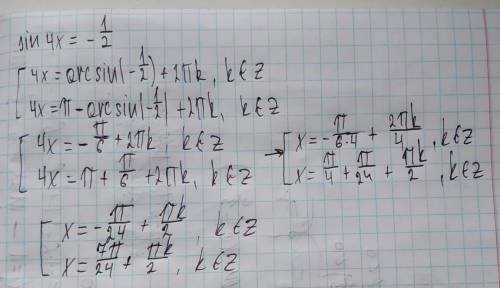 sin 4x = -1/2
[ 4x = arcsin(-1/2) + 2πk, k∈Z
[ 4x = π - arcsin(-1/2) + 2πk, k∈Z
[ 4x = -π/6 + 2πk, k∈Z → [ x = -π/(6·4) + 2πk/4, k∈Z
[ 4x = π + π/6 + 2πk, k∈Z [ x = π/4 + π/24 + πk/2, k∈Z
[ x = -π/24 + πk/2, k∈Z
[ x = 7π/24 + πk/2, k∈Z